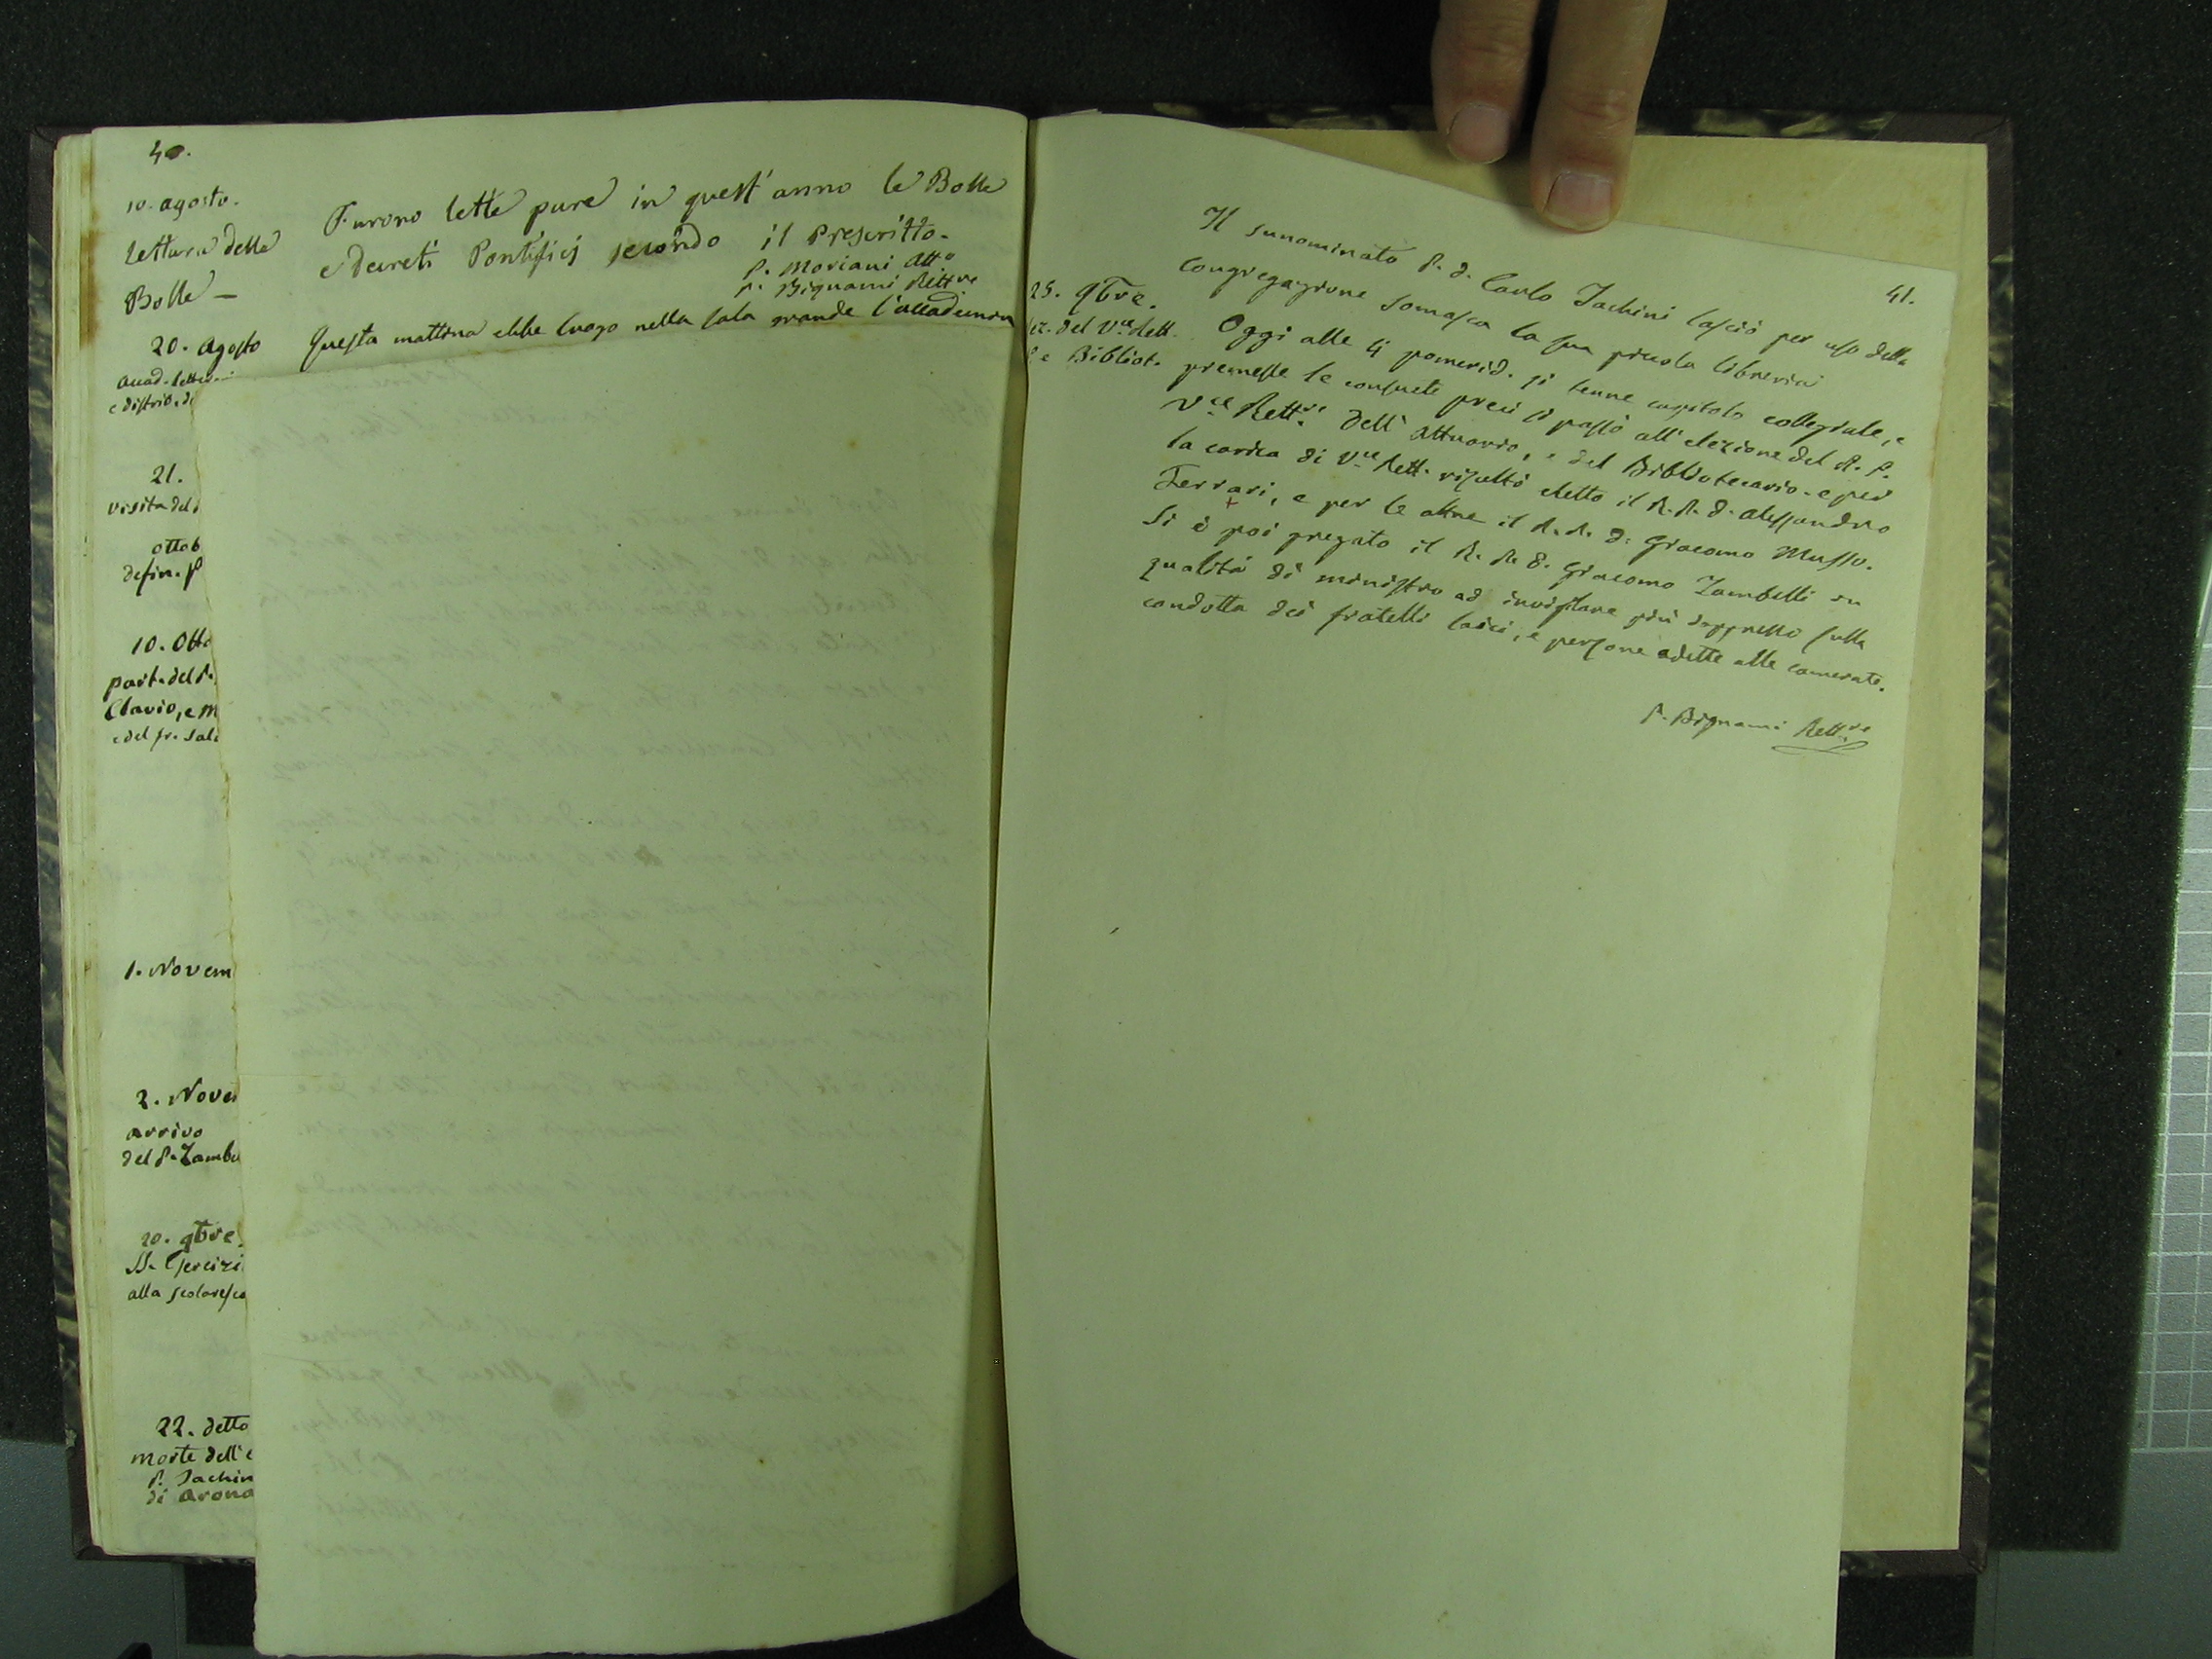 40.
10. agosto.
Lettura delle
Bolle —
Furono lette pure in quest'anno le Bolle
e Decreti Pontificj secondo il prescritto.
P. Moriani Att.o
P. Bignami Rettre
20. Agosto
accad. letter
e distrib. d
Questa mattina ebbe luogo nella sala grande l'accademia
21.
visita del
ottob
defin. P
10. Otto
part. del P.
Clavio, e M
e del fr. Sal
1. Novem
2. Nove
arrivo
del P. Zamb
20. 9bre
SS. Esercizi
alla scolaresca
22. detto
morte dell'
P. Jachin
di Arona
41.
Il sunominato P. D. Carlo Jachini lasciò per uso della
Congregazione Somasca la sua piccola libreria
25. 9bre.
ez. del Vce Rett.
e Bibliot.
Oggi alle 4 pomerid. si tenne capitolo collegiale, e
premesse le consuete preci si passò all'elezione del R. P.
Vce Rettre dell'Attuario, e del Bibliotecario. e per
la carica di Vce Rett. risultò eletto il R. P. D. Alessandro
Ferrari, e per le altre il R. P. D. Giacomo Musso.
Si è poi pregato il R. P. D. Giacomo Zambelli in
qualità di ministro ad invigilare più dappresso sulla
condotta dei fratelli laici, e persone adette alle camerate.
P. Bignami Rettre